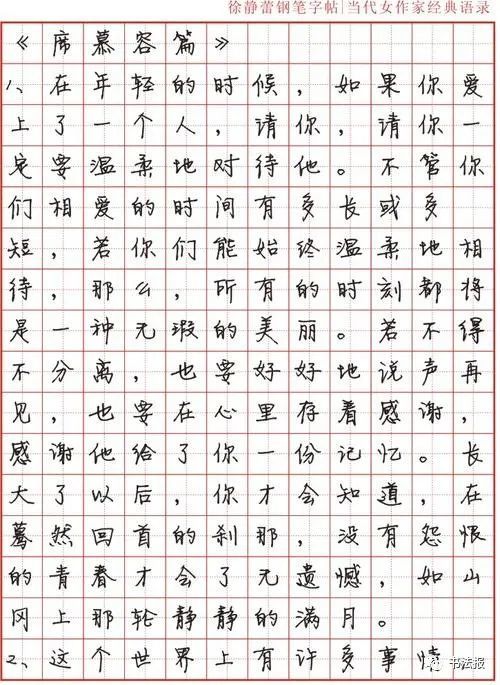 徐静蕾钢笔字帖|当代女作家经典语录
《席慕容篇》
1、在年轻的时候，如果你爱
上了一个人，请你，请你一
定要温柔地对待他。不管你
们相爱的时间有多长或多
短，若你们能始终温柔地相
待，那么，所有的时刻都将
是一种无瑕的美丽。若不得
不分离，也要好好地说声再
见，也要在心里存着感谢，
感谢他给了你一份记忆。长
大了以后，你才会知道，在
蓦然回首的刹那，没有怨恨
的青春才会了无遗憾，如山
冈上那轮静静的满月。
2、这个世界上有许多事情
书法报